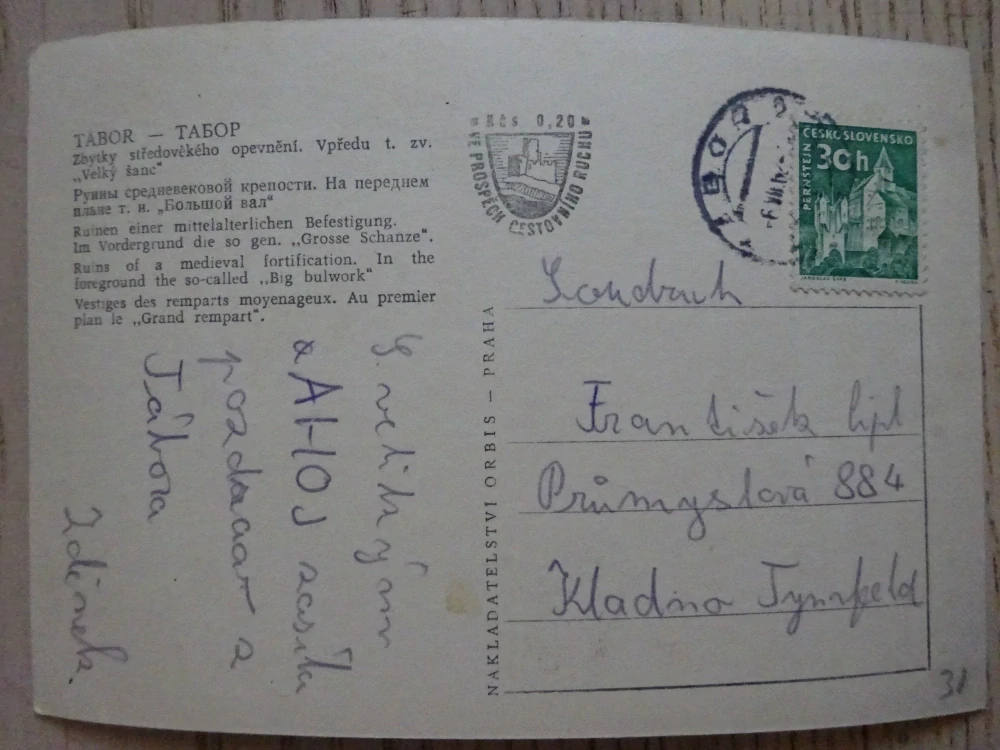 TÁBOR — ТАБОР
Zbytky středověkého opevnění. Vpředu t. zv.
„Velký šanc“
Руины средневековой крепости. На переднем
плане т. н. „Большой вал“
Ruinen einer mittelalterlichen Befestigung.
Im Vordergrund die so gen. „Grosse Schanze“.
Ruins of a medieval fortification. In the
foreground the so-called „Big bulwork“
Vestiges des remparts moyenageux. Au premier
plan le „Grand rempart“.
S velikým
a AHOJ zasílá
pozdrav z
Tábora
Zdeněk.
NAKLADATELSTVÍ ORBIS – PRAHA
Kčs 0,20
VE PROSPĚCH CESTOVNÍHO RUCHU
TÁBOR
ČESKOSLOVENSKO
30h
PERNŠTEJN
Soudruh
František
Průmyslová 884
Kladno
31